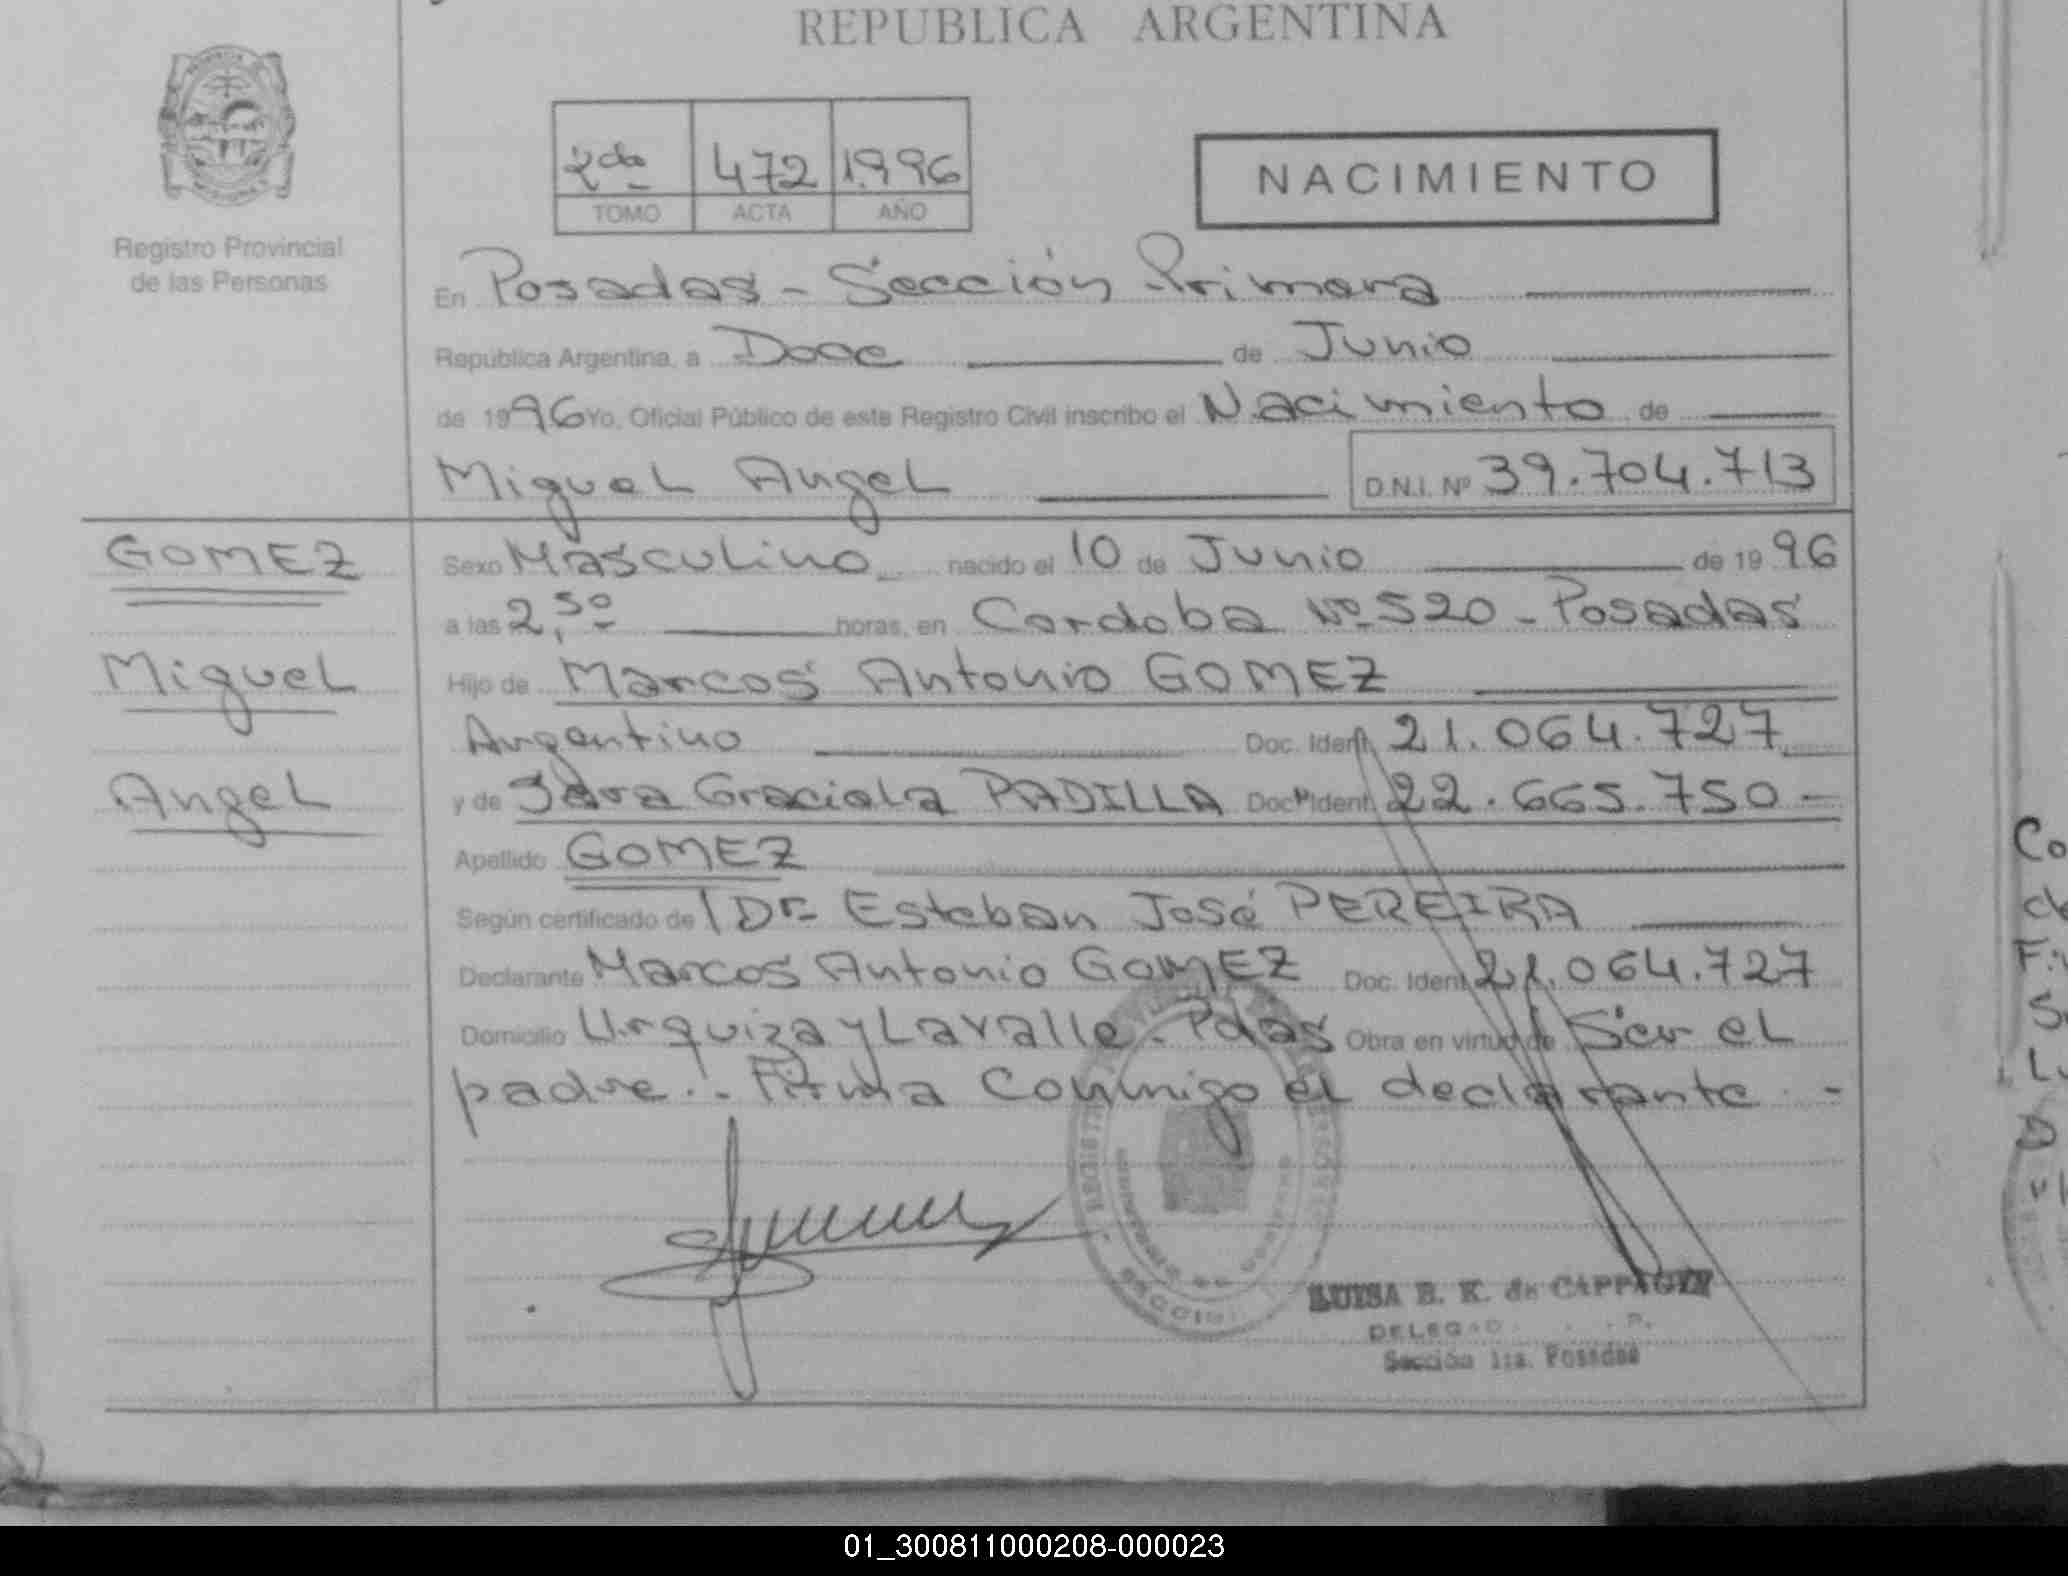 REPUBLICA ARGENTINA
2do 472 1996
TOMO ACTA AÑO
NACIMIENTO
Registro Provincial
de las Personas
En Posadas - Sección Primera
República Argentina, a Doce de Junio
de 1996 Yo, Oficial Público de este Registro Civil inscribo el Nacimiento de
Miguel Angel D.N.I. Nº 39.704.713
GOMEZ
Miguel
Angel
Sexo Masculino nacido el 10 de Junio de 1996
a las 2,50 horas, en Cordoba Nº 520 - Posadas
Hijo de Marcos Antonio GOMEZ
Argentino Doc. Ident. 21.064.727
y de Sara Graciela PADILLA Doc. Ident. 22.665.750 -
Apellido GOMEZ
Según certificado de l Dr. Esteban José PEREIRA
Declarante Marcos Antonio GOMEZ Doc. Ident. 21.064.727
Domicilio Urquiza y Lavalle. Pdas Obra en virtud de Ser el
padre.- Firma conmigo el declarante. -
LUISA B. K. de
Sección 1ra. Posadas
01_300811000208-000023